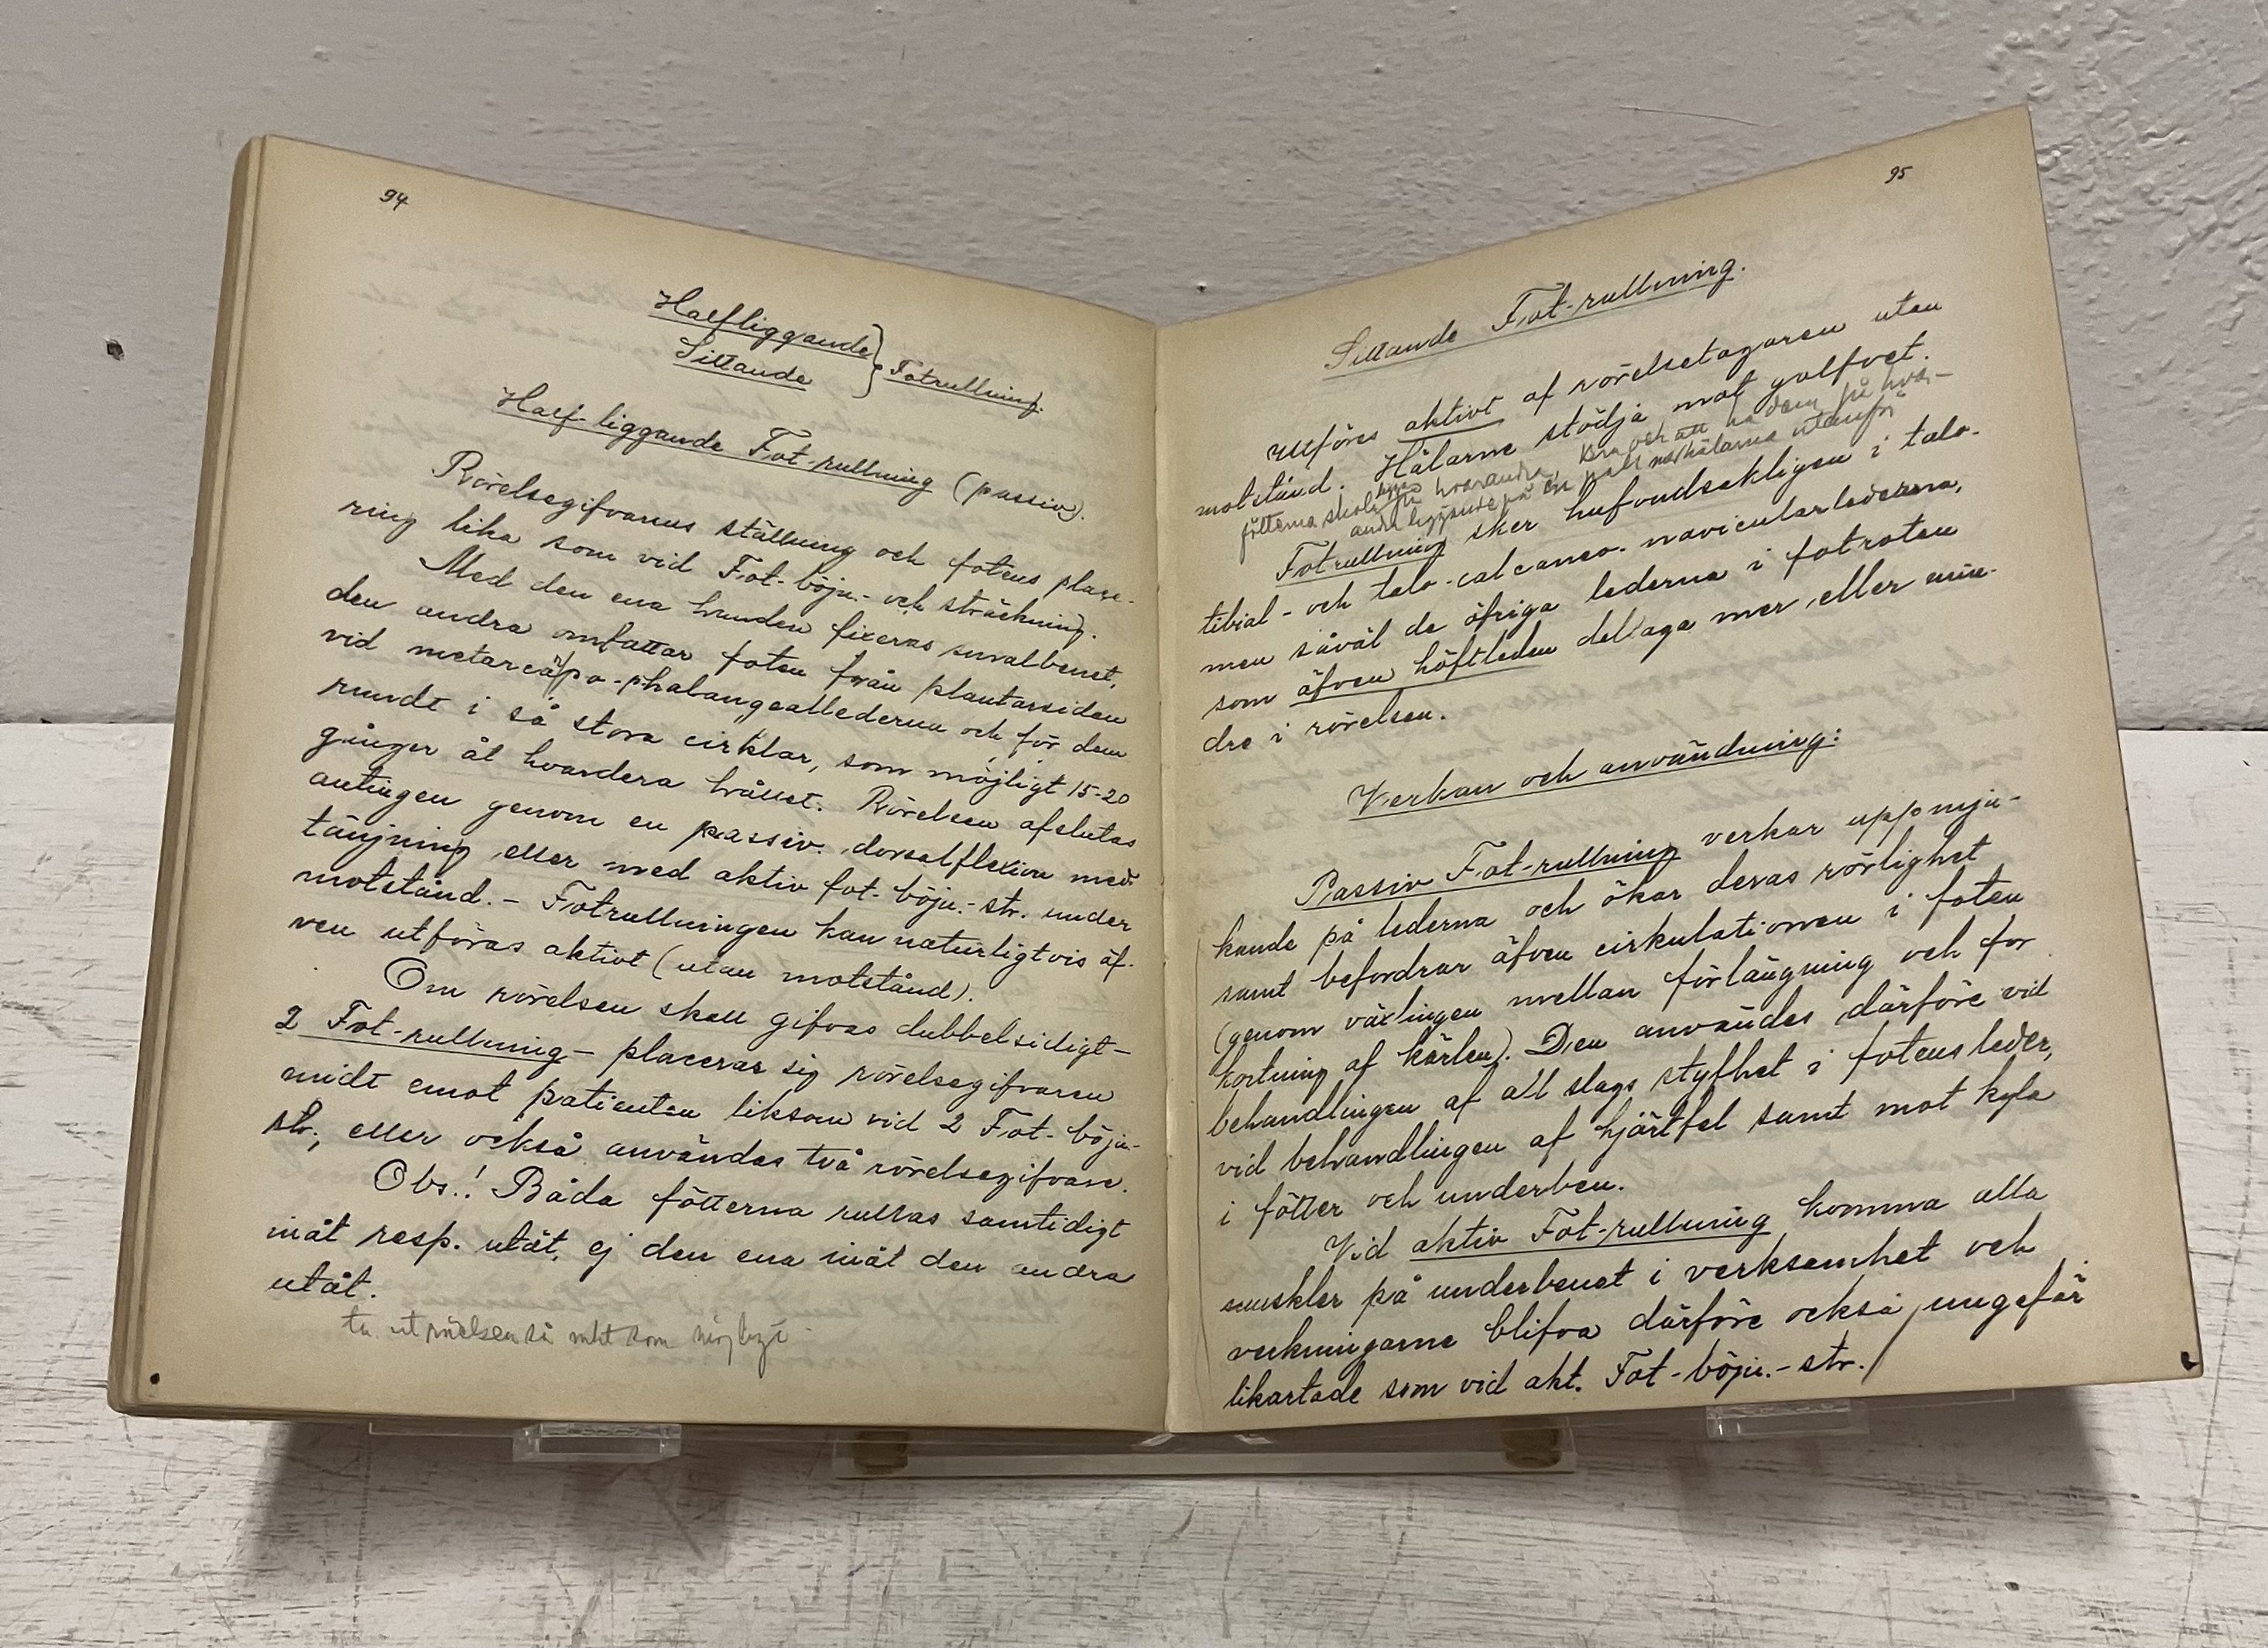 94
Halfliggande
Sittande } Fotrullning.
Half-liggande Fot-rullning (passiv).
Rörelsegifvarens ställning och fotens place-
ring lika som vid Fot-böjn.- och sträckning.
Med den ena handen fixeras smalbenet,
den andra omfattar foten från plantarsidan
vid metarcarpo-phalangeallederna och för dem
rundt i så stora cirklar, som möjligt 15-20
gånger åt hvardera hållet. Rörelsen afslutas
antingen genom en passiv. dorsalflexion med
tänjning, eller med aktiv fot-böjn.-str. under
motstånd. - Fotrullningen kan naturligtvis äf-
ven utföras aktivt (utan motstånd).
Om rörelsen skall gifvas dubbelsidigt -
2 Fot-rullning - placeras sig rörelsegifvaren
midt emot patienten liksom vid 2 Fot-böjn-
str., eller också användas två rörelsegifvare.
Obs.! Båda fötterna rullas samtidigt
inåt resp. utåt, ej den ena inåt den andra
utåt.
ta ut rörelsen så mkt som möjligt.
95
Sittande Fot-rullning.
Utföres aktivt af rörelsetagaren utan
motstånd. Hälarne stödja mot golfvet.
fötterna skola hvarandra, bra och att ha dem på hvar-
andra liggande på en pall med hälarna utanför
Fotrullning sker hufvudsakligen i talo-
tibial- och talo-calcaneo-navicularlederna,
men såväl de öfriga lederna i fotroten
som äfven höftleden deltaga mer, eller min-
dre i rörelsen.
Verkan och användning:
Passiv Fot-rullning verkar uppmju-
kande på lederna och ökar deras rörlighet
samt befordrar äfven cirkulationen i foten
(genom växlingen mellan förlängning och för
kortning af kärlen). Den användes därföre vid
behandlingen af all slags styfhet i fotens leder,
vid behandlingen af hjärtfel samt mot kyla
i fötter och underben.
Vid aktiv Fot-rullning komma alla
muskler på underbenet i verksamhet och
verkningarne blifva därföre också, ungefär
likartade som vid akt. Fot-böjn.-str.